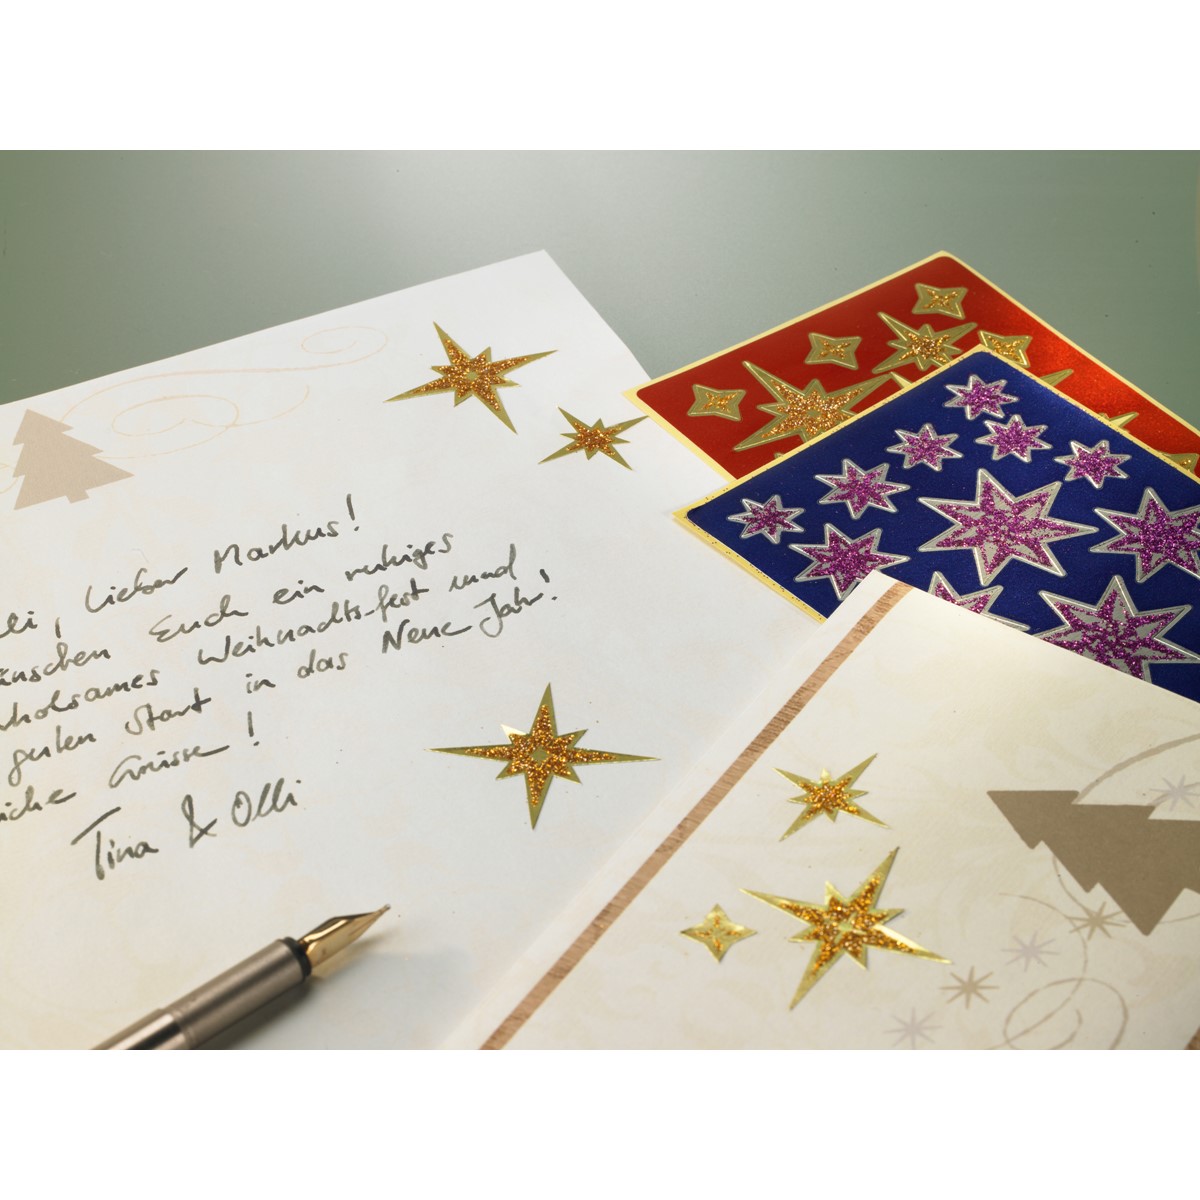 li, lieber Markus!
nschen Euch ein ruhiges
holsames Weihnachtsfest und
guten Start in das Neue Jahr!
iche Grüsse!
Tina & Olli